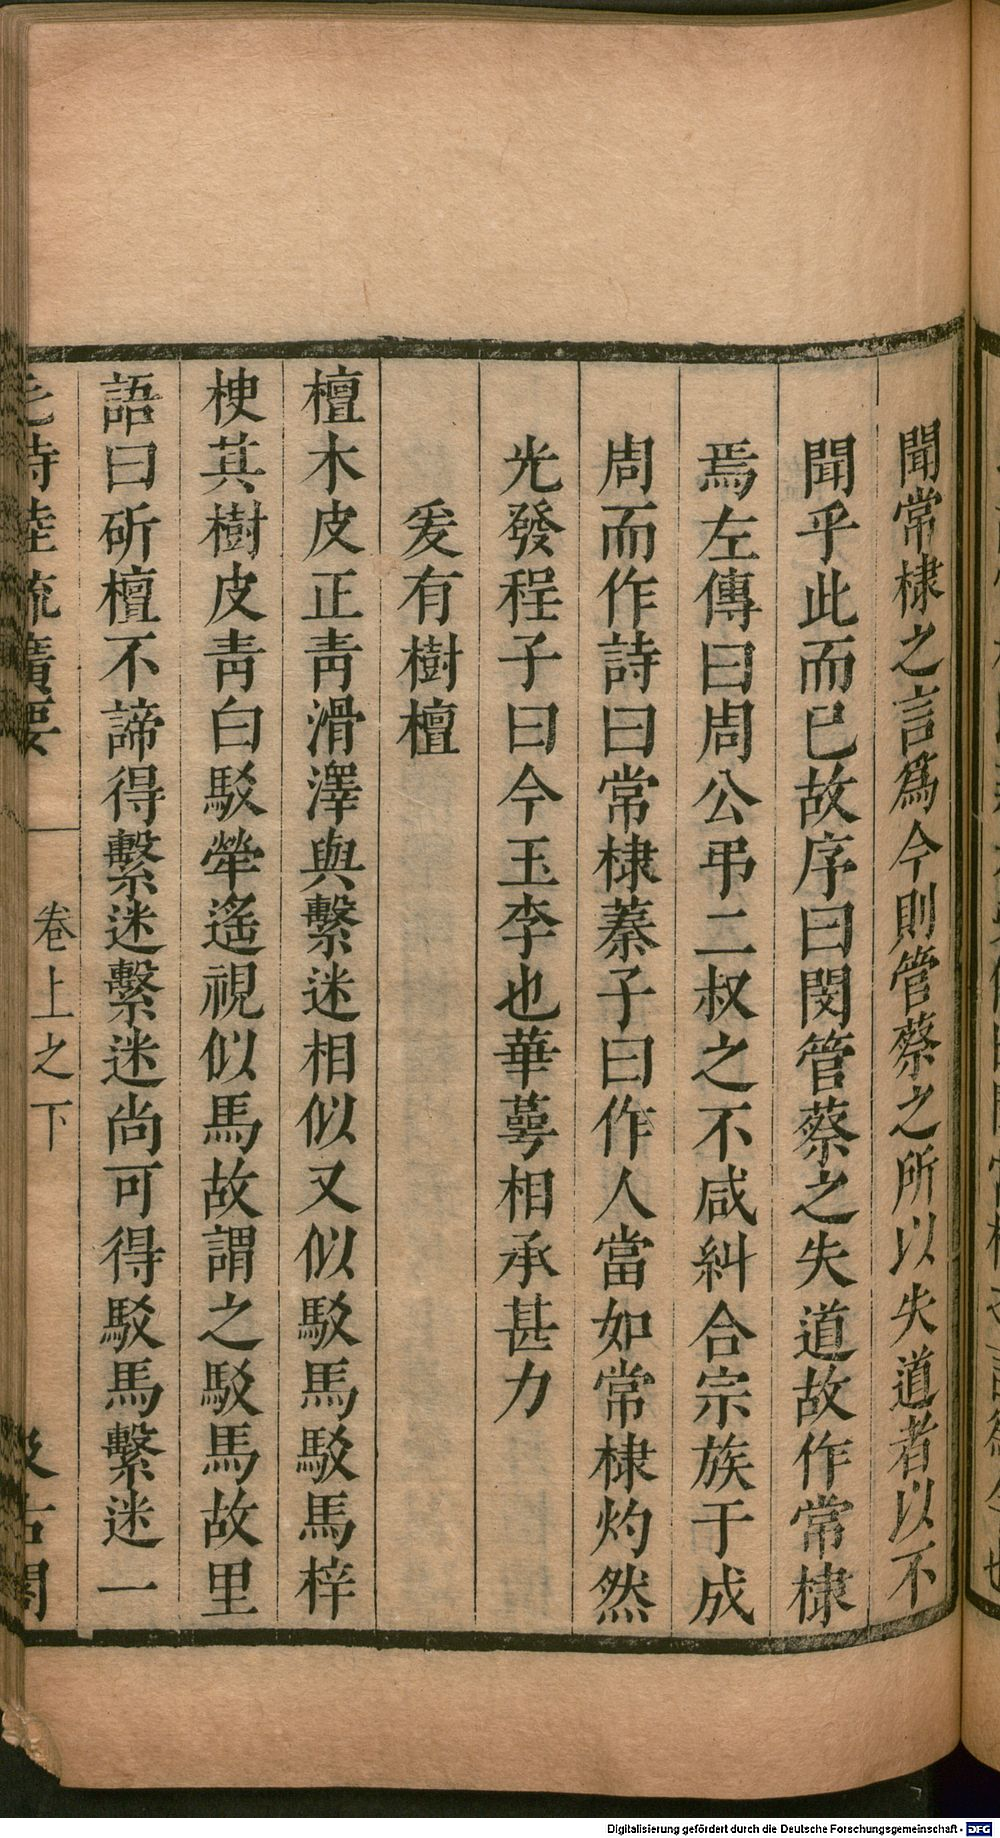 聞常棣之言爲今則管蔡之所以失道者以不
聞乎此而已故序曰閔管蔡之失道故作常棣
焉左傳曰周公弔二叔之不咸糾合宗族于成
周而作詩曰常棣蓁子曰作人當如常棣灼然
光發程子曰今玉李也華萼相承甚力
爰有樹檀
檀木皮正靑滑澤與繫迷相似又似駁馬駁馬梓
梗其樹皮靑白駁犖遙視似馬故謂之駁馬故里
語曰斫檀不諦得繫迷繫迷尚可得駁馬繫迷一
毛詩陸疏廣要 卷上之下 汲古閣
Digitalisierung gefördert durch die Deutsche Forschungsgemeinschaft - DFG